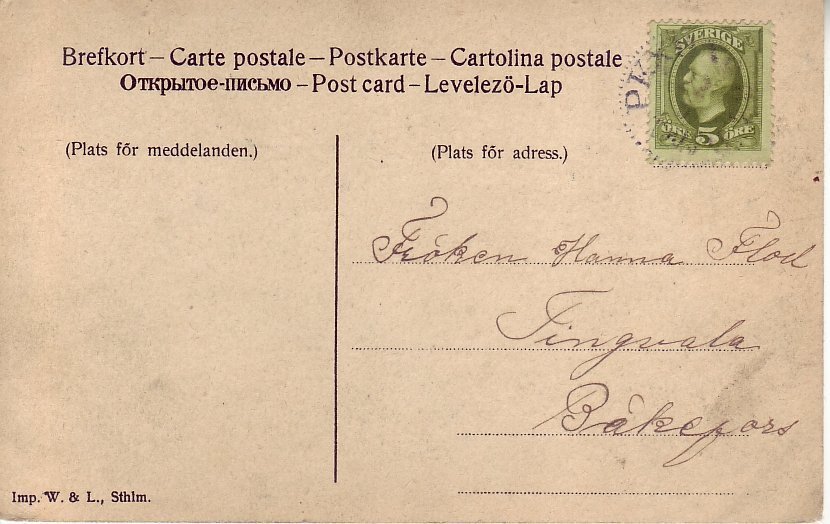 Brefkort – Carte postale – Postkarte – Cartolina postale
Открытое-письмо – Post card – Levelezö-Lap
SVERIGE
ÖRE 5 ÖRE
(Plats för meddelanden.)
(Plats för adress.)
Fröken Hanna Flod
Tingvala
Bäkefors
Imp. W. & L., Sthlm.